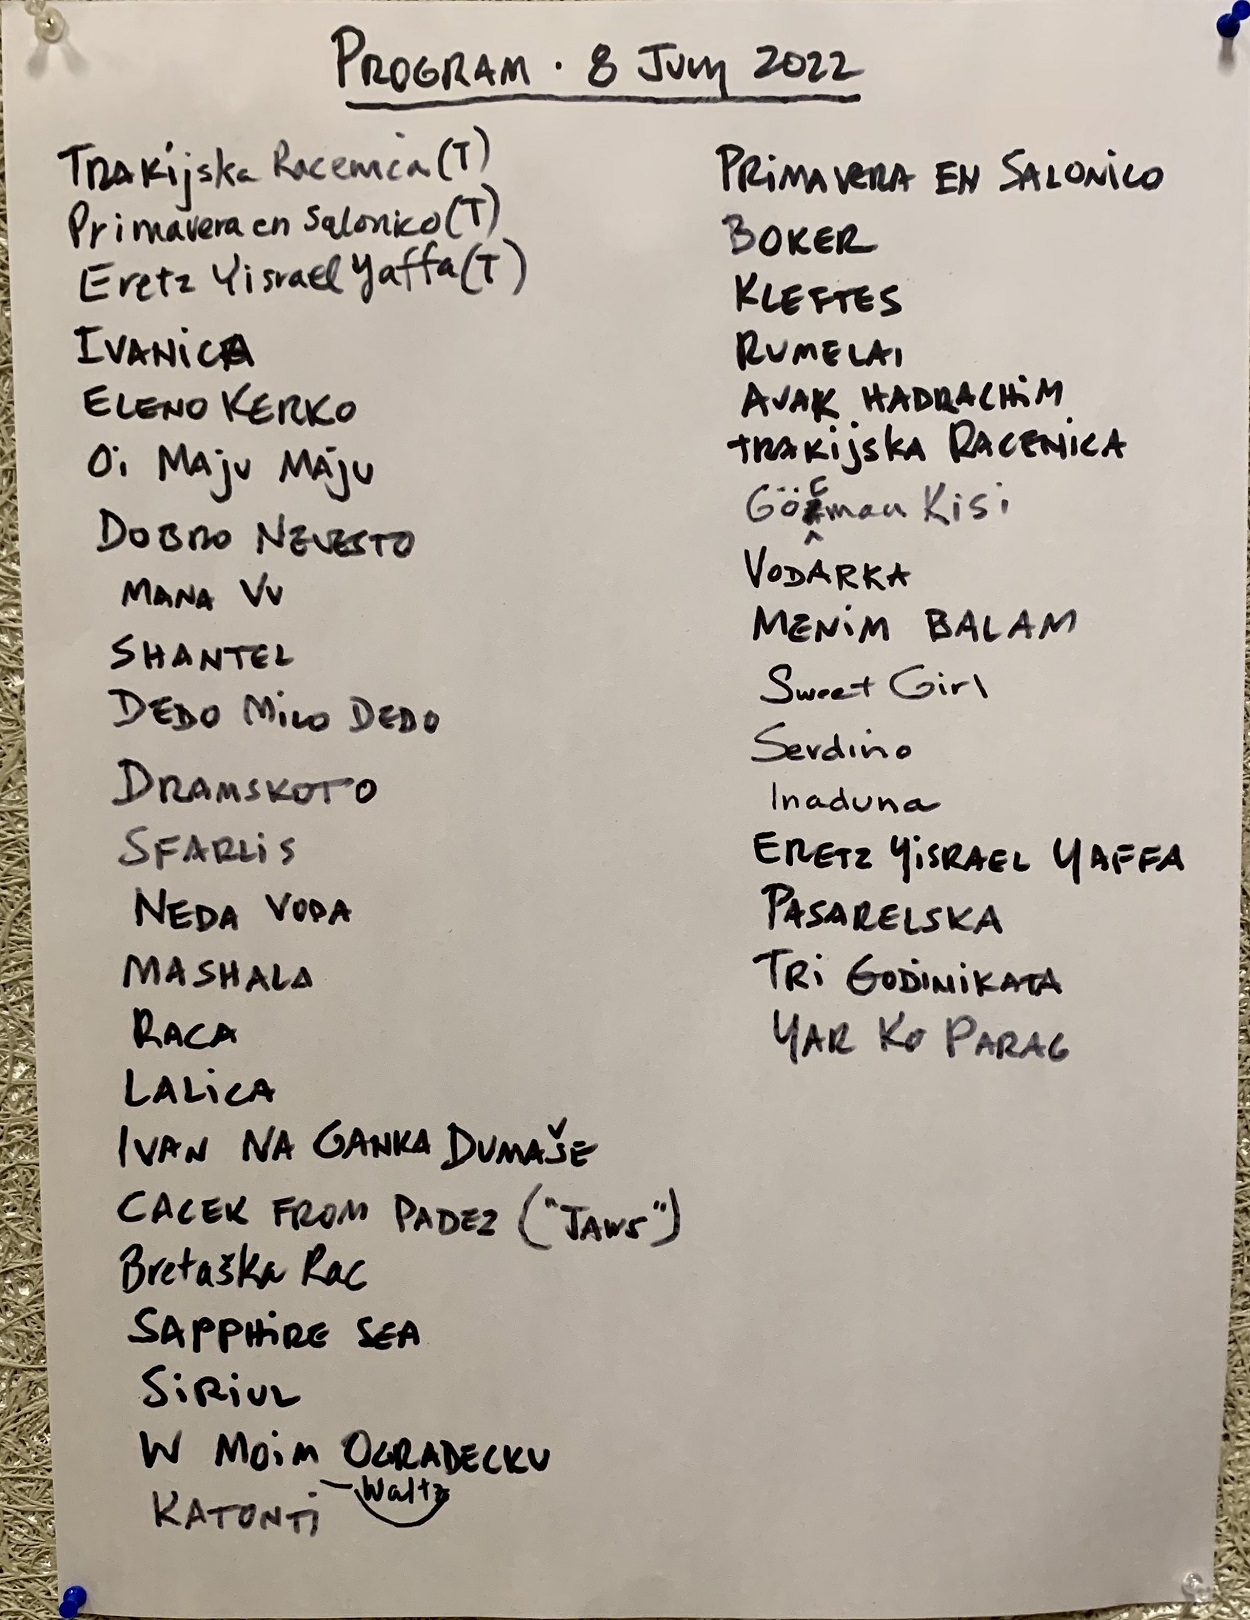 PROGRAM · 8 July 2022
TRAKijska Racenica (T)
Primavera en Salonico (T)
Eretz Yisrael Yaffa (T)
IVANICA
ELENO KERKO
Oi MAju MAju
DOBRO NEVESTO
MANA VU
SHANTEL
DEDO MiLO DEDO
DRAMSKOTO
SFARLiS
NEDA VODA
MASHALA
RACA
LALiCA
IVAN NA GANKA DUMAŠE
CACEK FROM PADEZ ("JAWS")
Bretaška Rac
SAPPHiRE SEA
SiRiUL
W MOiM OGRADECKU
– Waltz
KATONTi
PRiMAVERA EN SALONiCO
BOKER
KLEFTES
RUMELAJ
AVAK HADRACHiM
tRAKijskA RACENiCA
Kisi
VODARKA
MENiM BALAM
Sweet Girl
Serdino
Inaduna
ERETZ YiSRAEL YAFFA
PASARELSKA
TRi GODiNiKATA
YAR KO PARAG